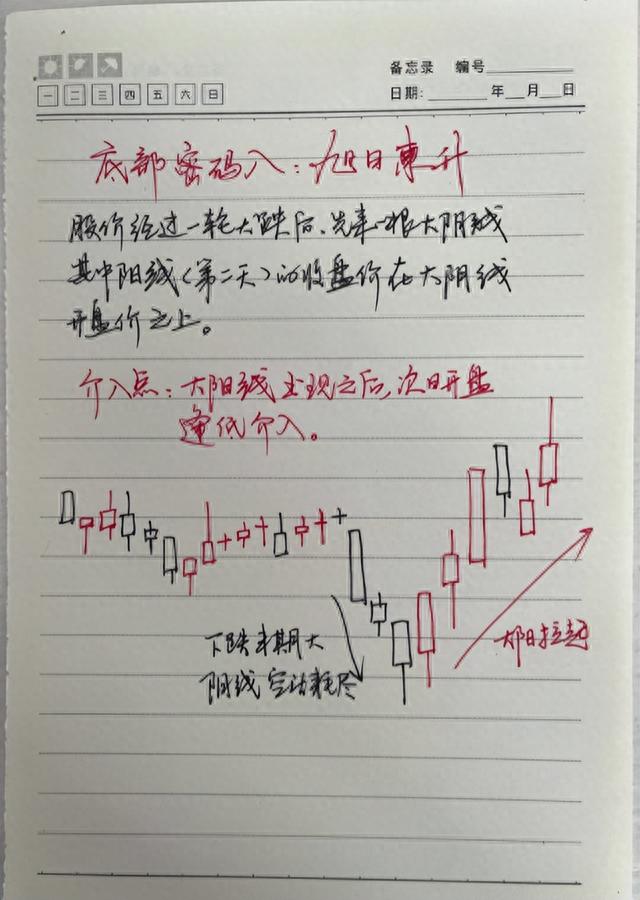 备忘录 编号
一 二 三 四 五 六 日
日期: 年 月 日
底部密码八：旭日東升
股价经过一轮大跌后、先来一根大阴线
其中阳线（第二天）的收盘价在大阴线
开盘价之上。
介入点：大阳线出现之后，次日开盘
逢低介入。
下跌末期大
阴线 空 耗尽
大阳拉起